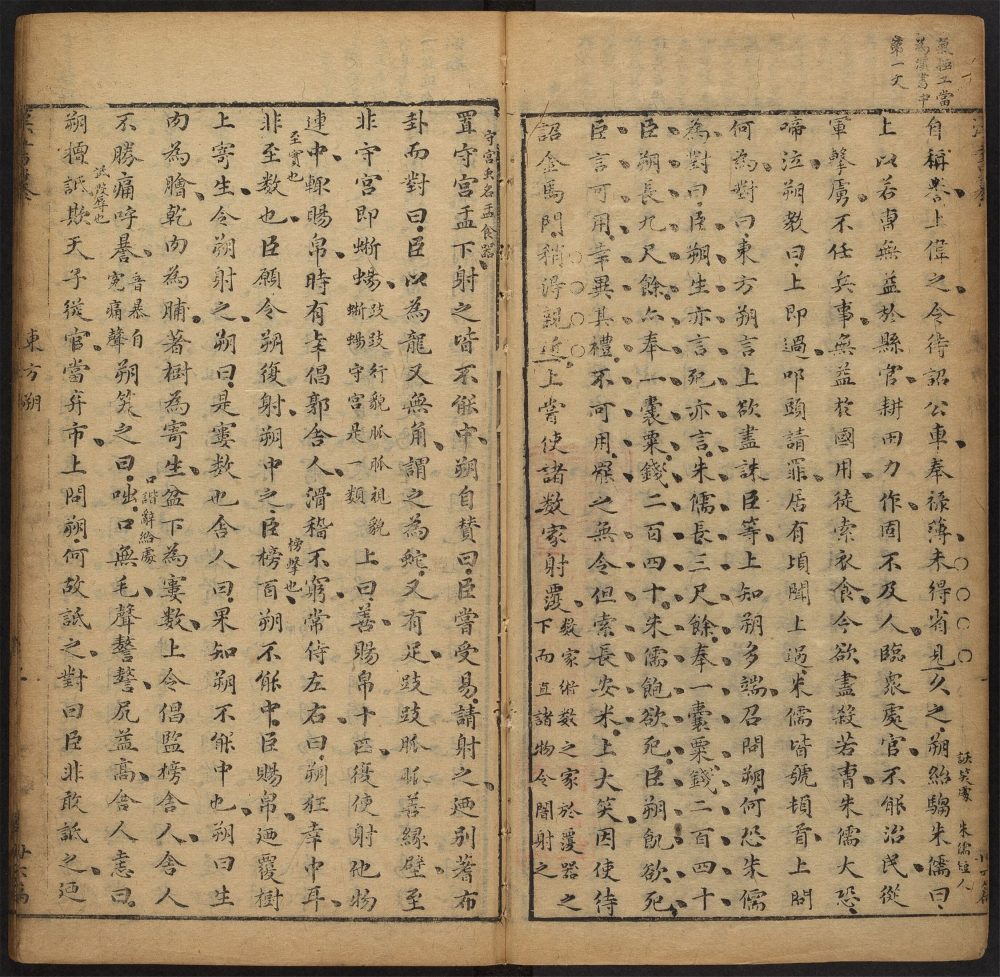 氣極工當
為漢書中
第一文
自稱譽上偉之令待詔公車奉祿薄未得省見久之朔紿騶朱儒曰
詼笑處
朱儒短人
上以若曹無益於縣官耕田力作固不及人臨眾處官不能治民從
軍擊虜不任兵事無益於國用徒索衣食今欲盡殺若曹朱儒大恐
啼泣朔教曰上即過叩頭請罪居有頃聞上過朱儒皆號頓首上問
何為對曰東方朔言上欲盡誅臣等上知朔多端召問朔何恐朱儒
為對曰臣朔生亦言死亦言朱儒長三尺餘奉一囊粟錢二百四十
臣朔長九尺餘亦奉一囊粟錢二百四十朱儒飽欲死臣朔飢欲死
臣言可用幸異其禮不可用罷之無令但索長安米上大笑因使待
詔金馬門稍得親近上嘗使諸数家射覆
数家術数之家於覆器之
下而直諸物令闇射之
置守宮盂下射之皆不能中朔自贊曰臣嘗受易請射之迺別蓍布
守宮虫名盂食器
卦而對曰臣以為龍又無角謂之為蛇又有足跂跂脈脈善緣壁
非守宮即蜥蜴
跂跂行貌脈脈視貌
蜥蜴守宮是一類
上曰善賜帛十匹復使射他物
連中輒賜帛時有幸倡郭舍人滑稽不窮常侍左右曰朔狂幸中耳
至實也
非至数也臣願令朔復射朔中之臣榜百朔不能中臣賜帛迺覆樹
榜擊也
上寄生令朔射之朔曰是寠数也舍人曰果知朔不能中也朔曰生
肉為膾乾肉為脯著樹為寄生盆下為寠数上令倡監榜舍人舍人
不勝痛呼暴
音暴自
冤痛聲
朔笑之曰咄口無毛聲謷謷尻益高舍人恚曰
口諧辭給處
朔擅詆欺天子從官當弃市上問朔何故詆之對曰臣非敢詆之迺
詆毀辱也
東方朔